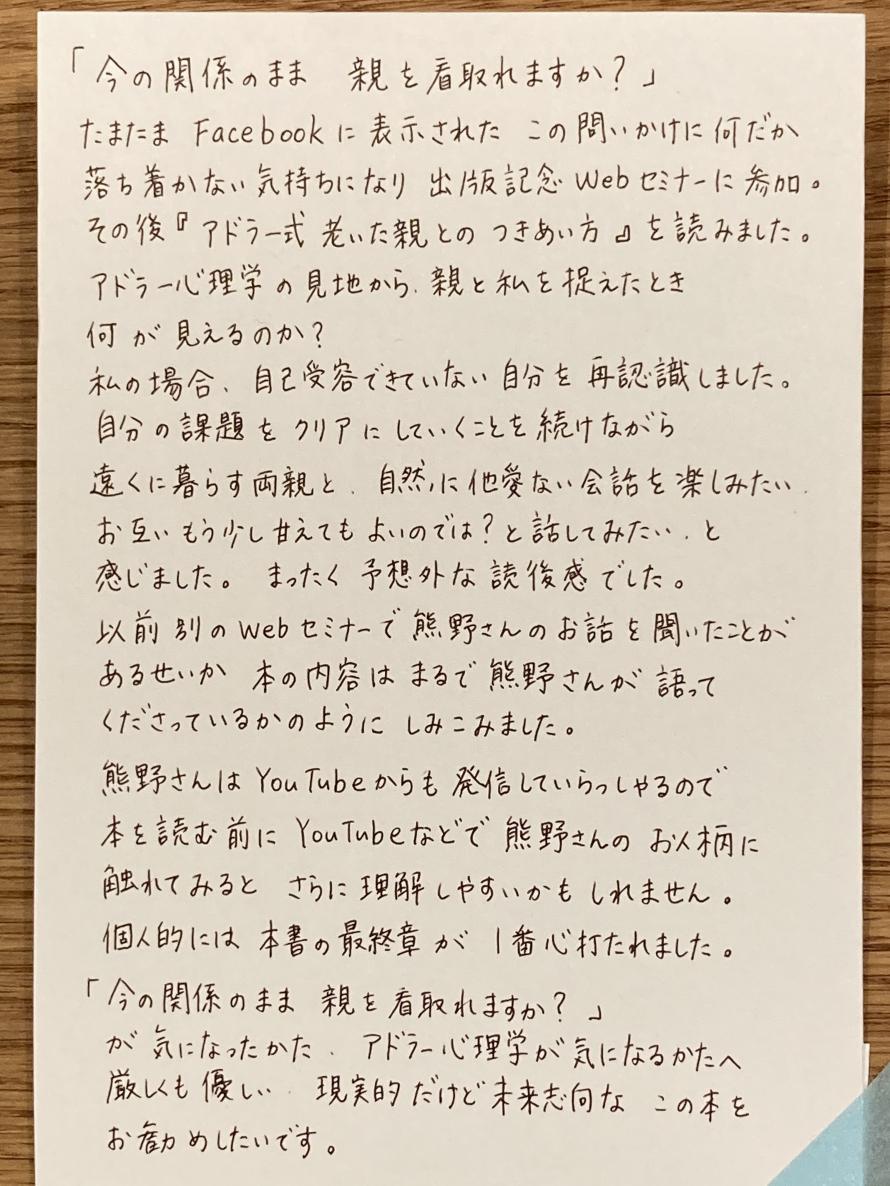 「今の関係のまま 親を看取れますか？」
たまたま Facebookに表示された この問いかけに何だか
落ち着かない気持ちになり 出版記念Webセミナーに参加。
その後『アドラー式 老いた親との つきあい方』を読みました。
アドラー心理学の見地から、親と私を捉えたとき
何が見えるのか？
私の場合、自己受容できていない自分を再認識しました。
自分の課題をクリアにしていくことを続けながら
遠くに暮らす両親と、自然に他愛ない会話を楽しみたい、
お互いもう少し甘えてもよいのでは？と話してみたい、と
感じました。 まったく予想外な読後感でした。
以前別のWebセミナーで熊野さんのお話を聞いたことが
あるせいか 本の内容はまるで熊野さんが語って
くださっているかのように しみこみました。
熊野さんはYouTubeからも発信していらっしゃるので
本を読む前にYouTubeなどで熊野さんの お人柄に
触れてみると さらに理解しやすいかもしれません。
個人的には 本書の最終章が 1番心打たれました。
「今の関係のまま 親を看取れますか？」
が気になったかた、アドラー心理学が気になるかたへ
厳しくも優しい、現実的だけど未来志向な この本を
お勧めしたいです。